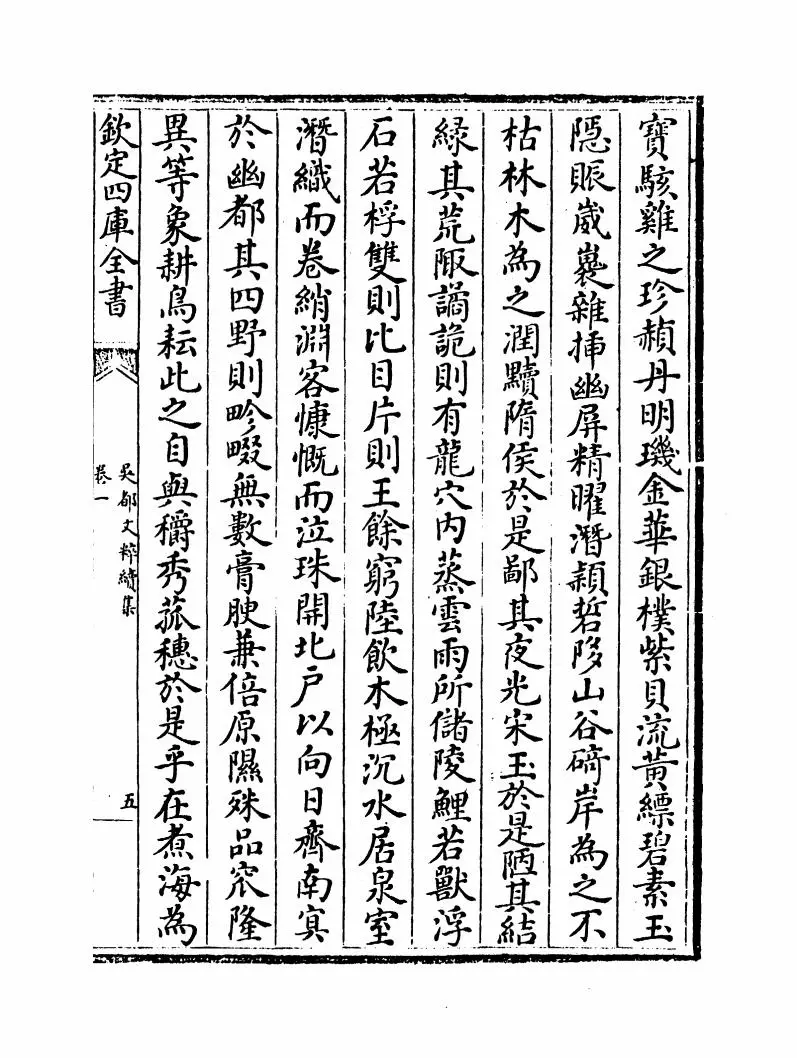 寶駭雞之珍赬丹明璣金華銀樸紫貝流黃縹碧素玉
隠賑崴㠢雜揷幽屏精曜潛颖硩陊山谷碕岸為之不
枯林木為之潤黷隋侯於是鄙其夜光宋玉於是陋其結
緑其荒陬譎詭則有龍穴内蒸雲雨所儲陵鯉若獸浮
石若桴雙則比目片則王餘窮陸飲木極沉水居泉室
潛織而卷綃淵客慷慨而泣珠開北户以向日齊南冥
於幽都其四野則畛畷無數膏腴兼倍原隰殊品窊隆
異等象耕鳥耘此之自與穱秀菰穗於是乎在煮海為
欽定四庫全書
吳都文粹續集
卷一
五